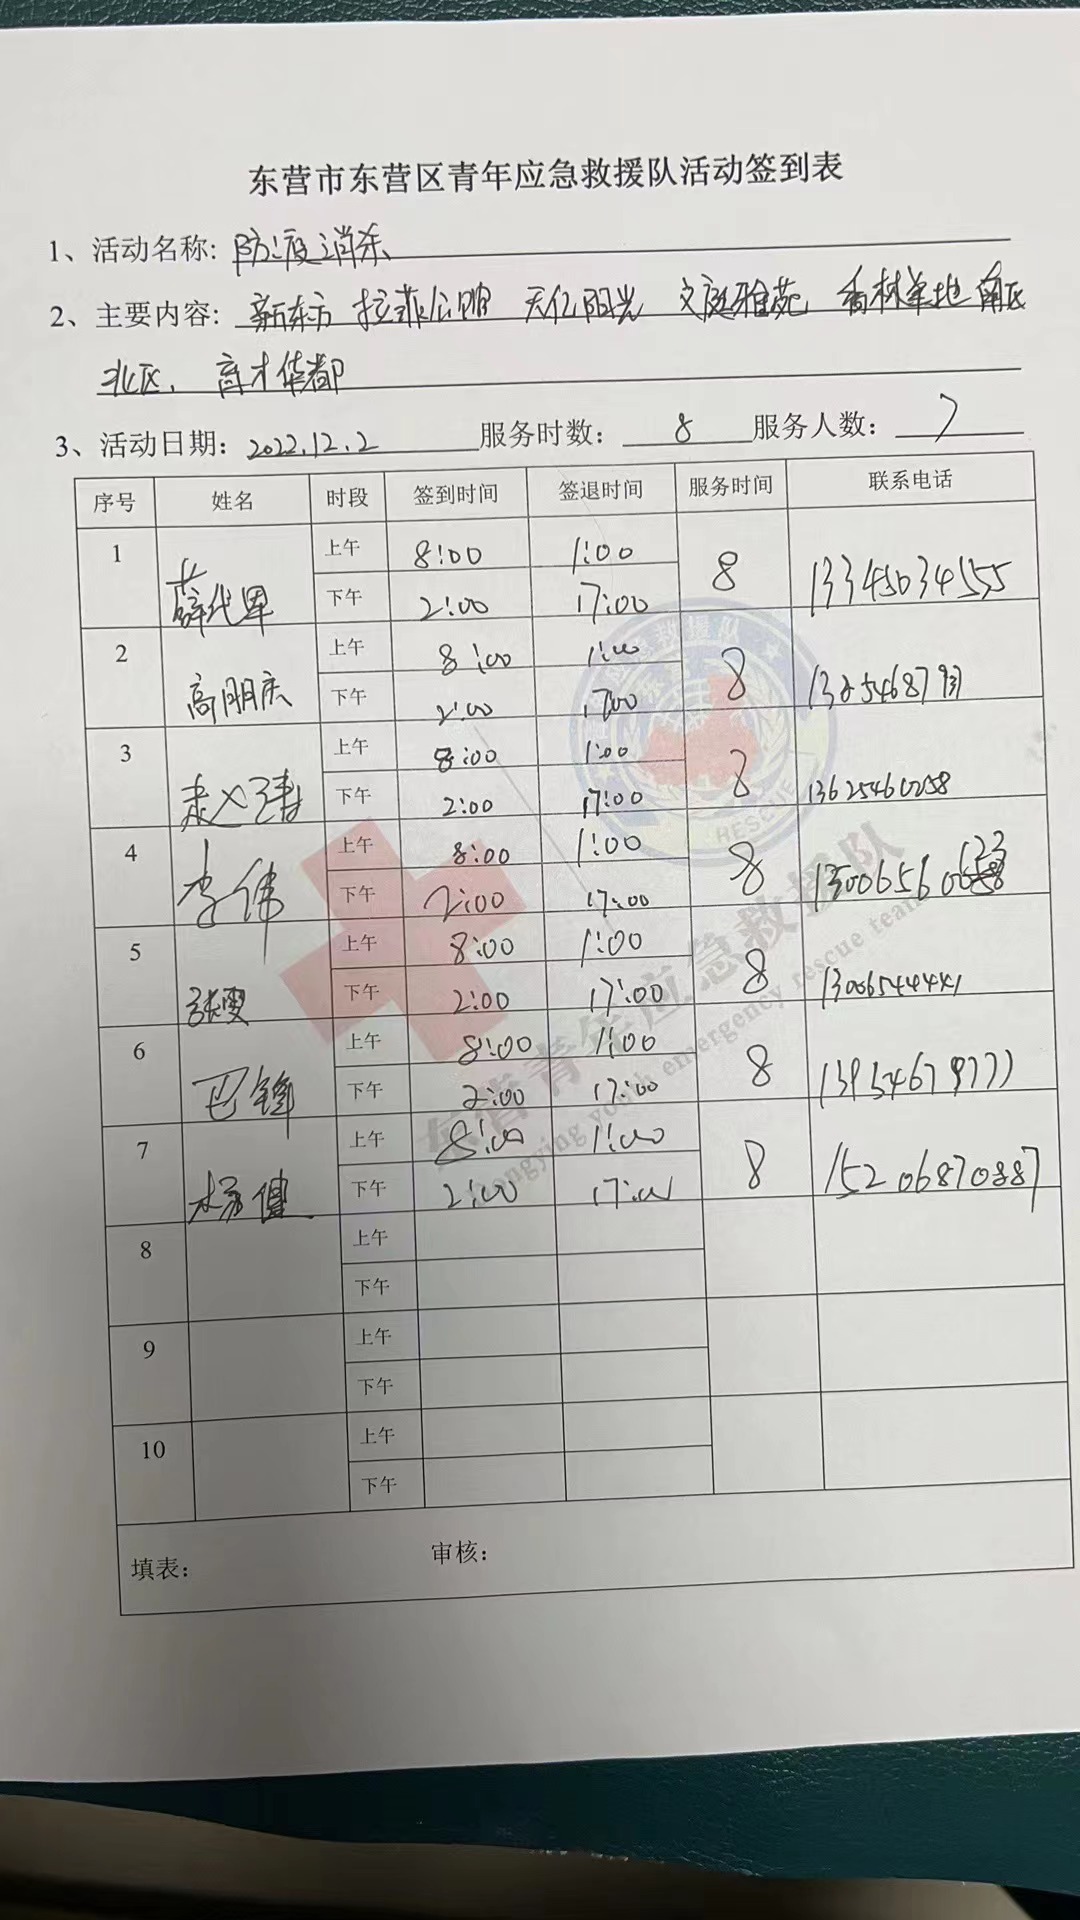 东营市东营区青年应急救援队活动签到表
1、活动名称: 防疫消杀
2、主要内容: 新东方 拉菲公馆 天亿阳光 文庭雅苑 香林美地南区
北区、育才华都
3、活动日期: 2022.12.2 服务时数: 8 服务人数: 7
序号 姓名 时段 签到时间 签退时间 服务时间 联系电话
1 薛代恩 上午 8:00 1:00 8 13345034555
下午 2:00 17:00
2 高朋庆 上午 8:00 1:00 8
下午 2:00 1700
3 上午 8:00 1:00 8 13625460258
下午 2:00 17:00
4 李伟 上午 8:00 1:00 8
下午 2:00 17:00
5 张雯 上午 8:00 1:00 8 13006544441
下午 2:00 17:00
6 巴锋 上午 8:00 1:00 8 13954679777
下午 2:00 17:00
7 杨健 上午 8:00 1:00 8 15206870887
下午 2:00 17:00
8 上午
下午
9 上午
下午
10 上午
下午
填表: 审核:
应急救援队
RESCUE
东营青年应急救援队
dongying youth emergency rescue team